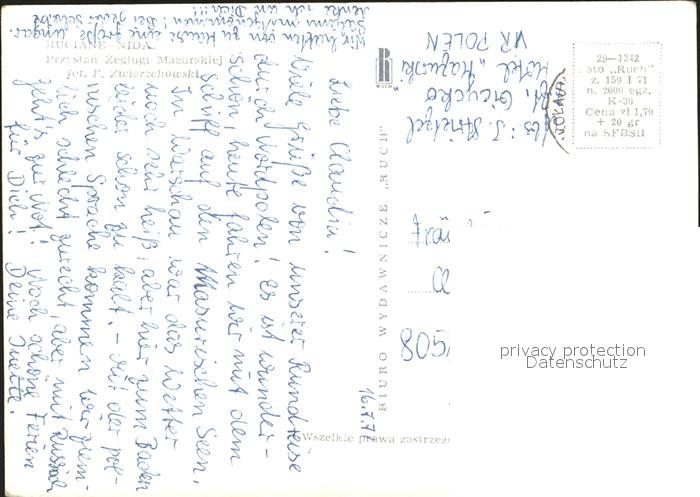 RUCIANE - NIDA.
Przystań Żeglugi Mazurskiej
fot. P. Zwierzchowski
Liebe Claudia!
Viele Grüße von unserer Rundreise
durch Nordpolen! Es ist wunder-
schön, heute fahren wir mit dem
Schiff auf den Masurischen Seen.
In Warschau war das Wetter
noch sehr heiß, aber hier zum Baden
leider schon zu kalt. - Mit der pol-
nischen Sprache kommen wir ziem-
lich schlecht zurecht, aber mit Russisch
geht's zur Not! Noch schöne Ferien
für Dich! Deine
Wir hatten von zu Hause eine große ungar.
Salami mitgenommen! Bei jeder Scheibe
denke ich an Dich!!!
16.7.7
BIURO WYDAWNICZE „RUCH"
RUCH
Wszelkie prawa zastrzeż
Abs: J.
Hotel „Mazurski"
VR POLEN
29-1342
oto „Ruch"
z. 159 I 71
n. 2000 egz.
K-30
Cena zł 1,70
+ 20 gr
na SFBSiI
805
privacy protection
Datenschutz